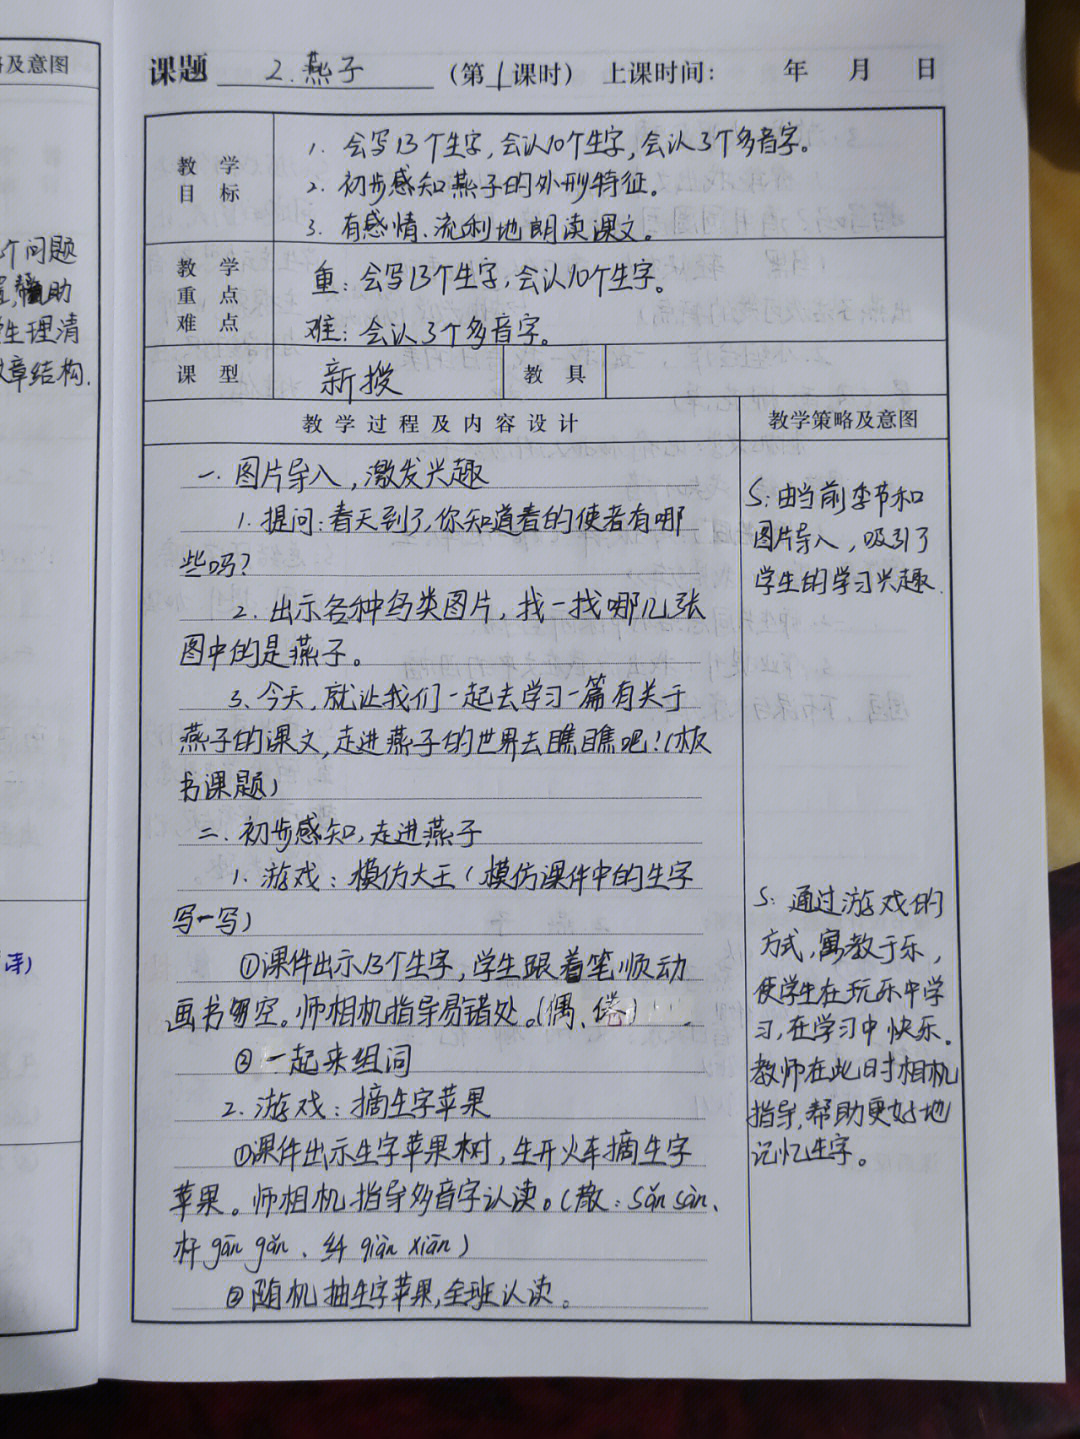 略及意图
个问题
助
生理清
章结构.
课题 2.燕子 (第1课时) 上课时间: 年 月 日
教学目标
1. 会写13个生字,会认10个生字,会认3个多音字。
2. 初步感知燕子的外形特征。
3. 有感情、流利地朗读课文。
教学重点难点
重:会写13个生字,会认10个生字。
难:会认3个多音字。
课型 新授 教具
教学过程及内容设计 教学策略及意图
一.图片导入,激发兴趣
1.提问:春天到了,你知道春的使者有哪
些吗?
2. 出示各种鸟类图片,找一找哪几张
图中的是燕子。
3.今天,就让我们一起去学习一篇有关于
燕子的课文,走进燕子的世界去瞧瞧吧!(板
书课题)
二.初步感知,走进燕子
1. 游戏:模仿大王(模仿课件中的生字
写一写)
①课件出示13个生字,学生跟着笔顺动
画书写空。师相机指导易错处。(偶、倦)
②一起来组词
2.游戏:摘生字苹果
①课件出示生字苹果树,生开火车摘生字
苹果。师相机指导多音字认读。(散:sǎn sàn、
杆 gān gǎn、纤 qiàn xiān)
②随机抽生字苹果,全班认读。
S:由当前季节和
图片导入,吸引了
学生的学习兴趣.
S:通过游戏的
方式,寓教于乐,
使学生在玩乐中学
习,在学习中快乐.
教师在此时相机
指导,帮助更好地
记忆生字。